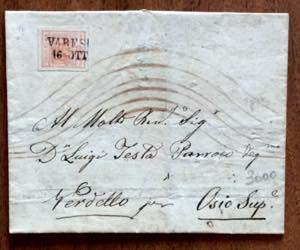 VARESE
16 OTT
Al Molto Rev.do Sig.r
D.n Luigi Testa Parroco
Verdello per Osio Sup.e
3000